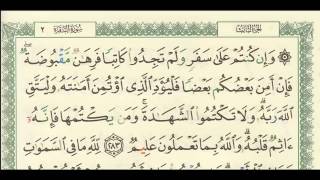 الجزء الثالث سورة البقرة ٢
وَإِن كُنتُمْ عَلَىٰ سَفَرٍ وَلَمْ تَجِدُوا۟ كَاتِبًا فَرِهَٰنٌ مَّقْبُوضَةٌ
فَإِنْ أَمِنَ بَعْضُكُم بَعْضًا فَلْيُؤَدِّ ٱلَّذِى ٱؤْتُمِنَ أَمَٰنَتَهُۥ وَلْيَتَّقِ
ٱللَّهَ رَبَّهُۥ وَلَا تَكْتُمُوا۟ ٱلشَّهَٰدَةَ وَمَن يَكْتُمْهَا فَإِنَّهُۥٓ
ءَاثِمٌ قَلْبُهُۥ وَٱللَّهُ بِمَا تَعْمَلُونَ عَلِيمٌ ٢٨٣ لِّلَّهِ مَا فِى ٱلسَّمَٰوَٰتِ